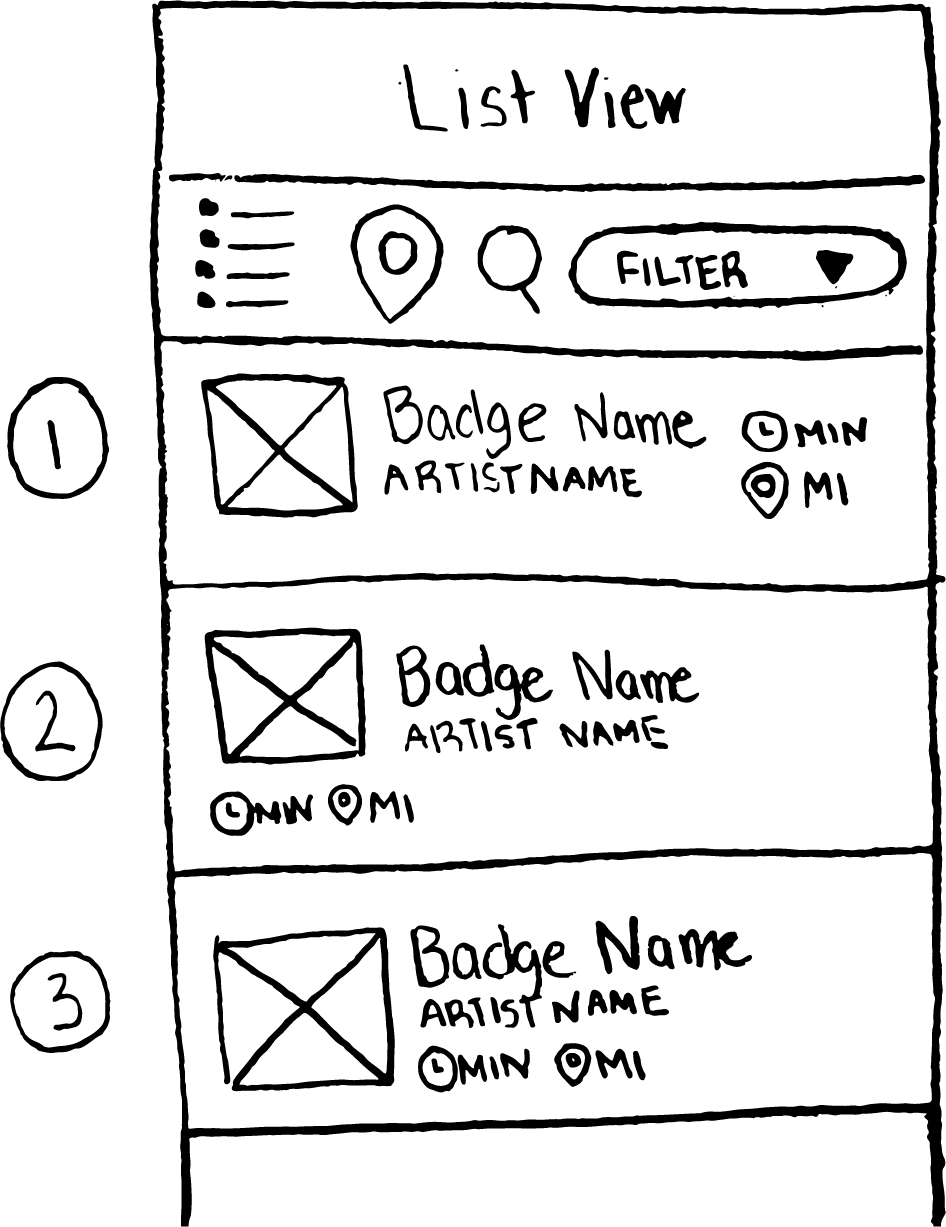 List View
FILTER
1
Badge Name
MIN
ARTIST NAME
MI
2
Badge Name
ARTIST NAME
MIN MI
3
Badge Name
ARTIST NAME
MIN MI